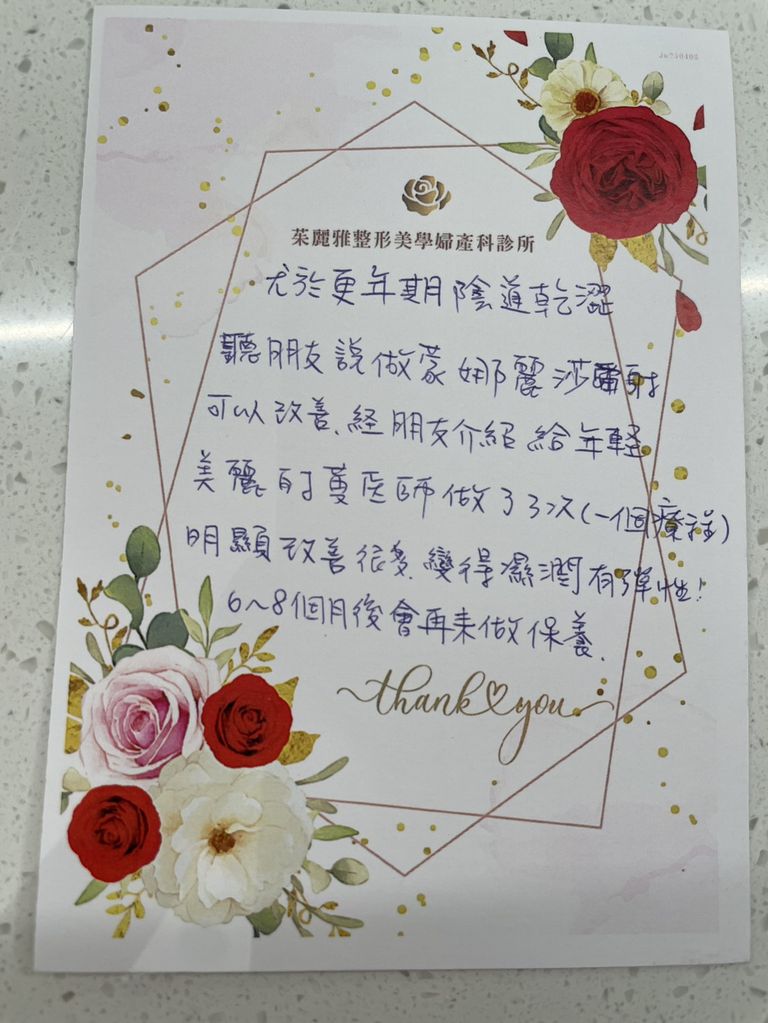 Ja250408
茱麗雅整形美學婦產科診所
尤於更年期陰道乾澀
聽朋友說做蒙娜麗莎雷射
可以改善、經朋友介紹給年輕
美麗的蔓医師做了3次(一個療程)
明顯改善很多、變得濕潤有彈性!
6~8個月後會再來做保養.
thank you